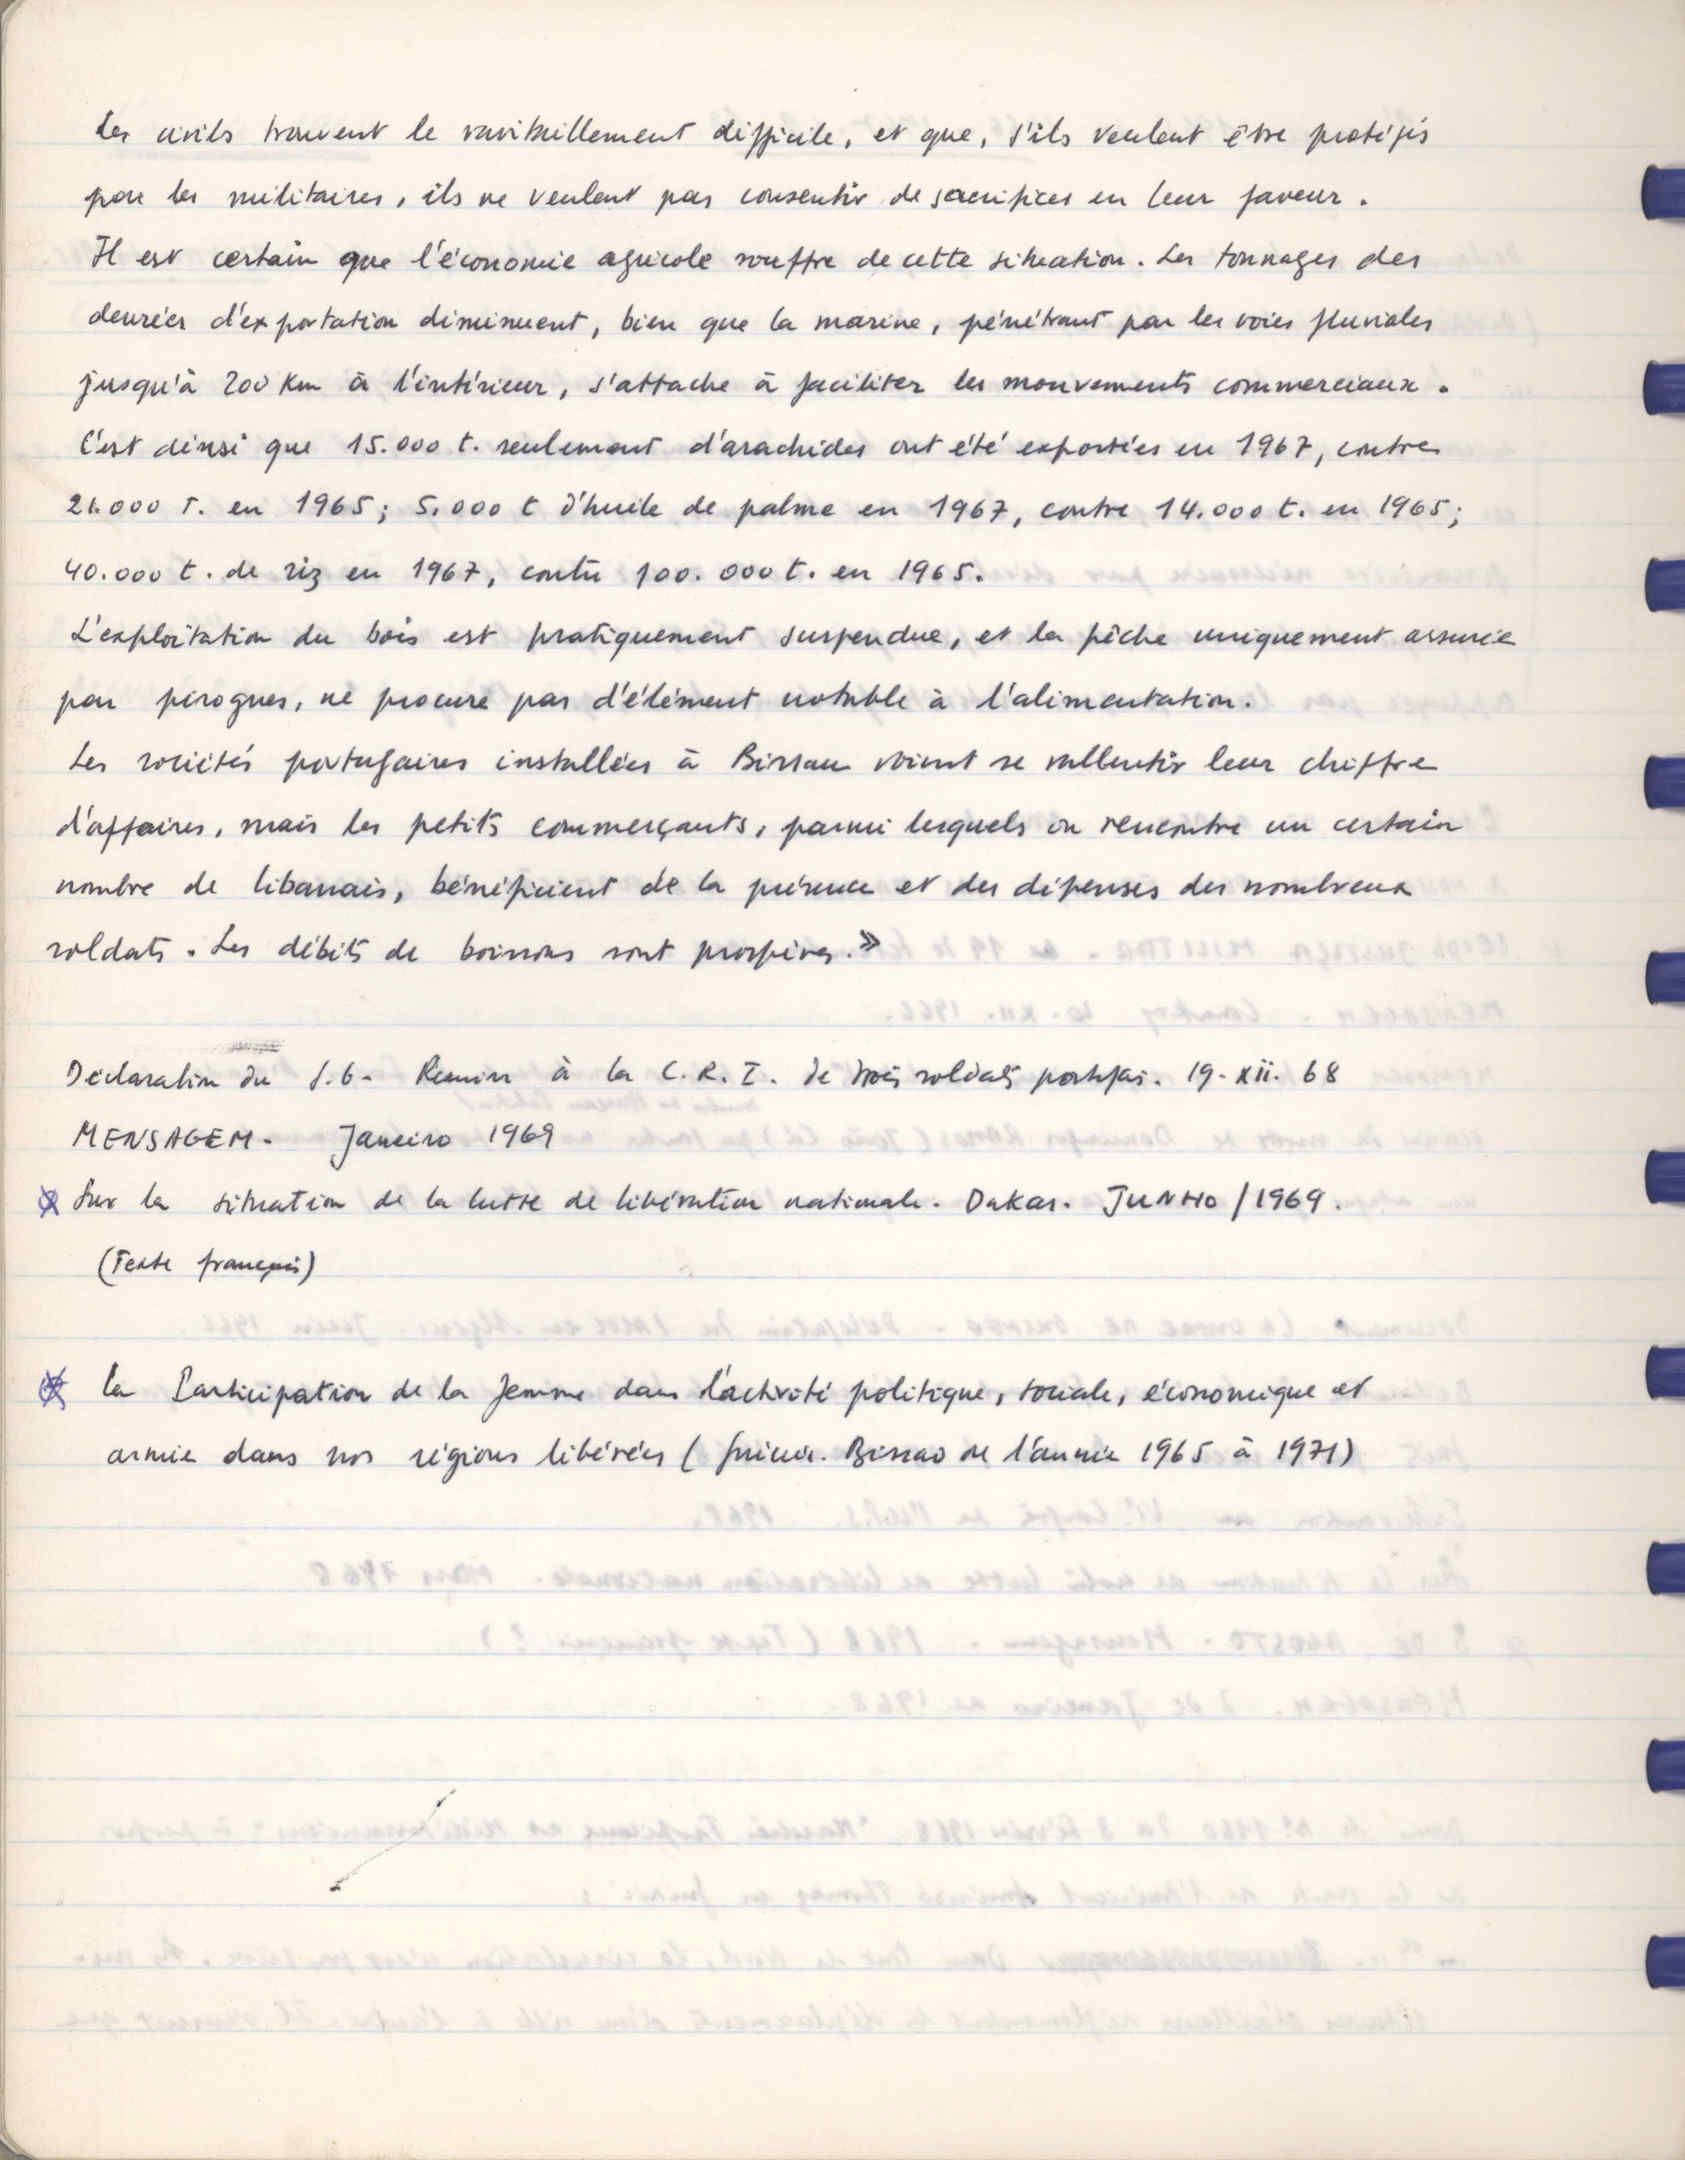 les civils trouvent le ravitaillement difficile, et que, s'ils veulent être protégés
par les militaires, ils ne veulent pas consentir de sacrifices en leur faveur.
Il est certain que l'économie agricole souffre de cette situation. Les tonnages des
denrées d'exportation diminuent, bien que la marine, pénétrant par les voies fluviales
jusqu'à 200 Km à l'intérieur, s'attache à faciliter les mouvements commerciaux.
C'est ainsi que 15.000 t. seulement d'arachides ont été exportées en 1967, contre
21.000 T. en 1965; 5.000 t d'huile de palme en 1967, contre 14.000 t. en 1965;
40.000 t. de riz en 1967, contre 100.000 t. en 1965.
L'exploitation du bois est pratiquement suspendue, et la pêche uniquement assurée
par pirogues, ne procure pas d'élément notable à l'alimentation.
Les sociétés portugaises installées à Bissau voient se rallentir leur chiffre
d'affaires, mais les petits commerçants, parmi lesquels on rencontre un certain
nombre de libanais, bénéficient de la présence et des dépenses des nombreux
soldats. Les débits de boissons sont prospères.»
Déclaration du S.G. Remise à la C.R.I. de trois soldats portugais. 19.XII.68
MENSAGEM. Janeiro 1969
Sur la situation de la lutte de libération nationale. Dakar. JUNHO/1969.
(Texte français)
La Participation de la femme dans l'activité politique, sociale, économique et
armée dans nos régions libérées (Guinée. Bissao de l'année 1965 à 1971)